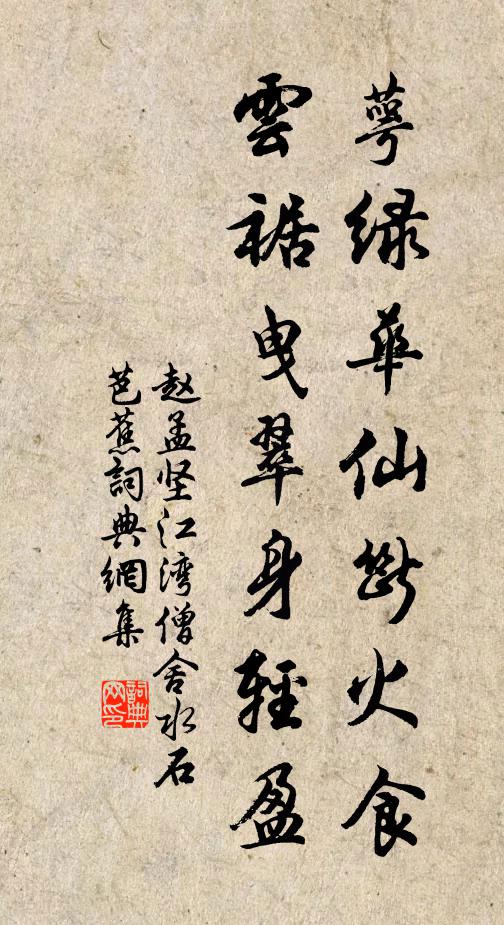 萼緑華仙斷火食
雲裾曳翠身輕盈
赵孟坚江湾僧舍水石
芭蕉詞典網集
詞典网印